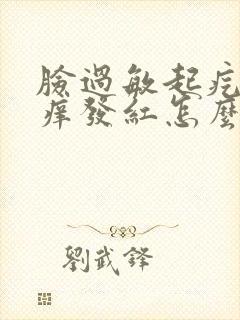 臉過敏起疙
癢發紅怎麼
劉武鋒